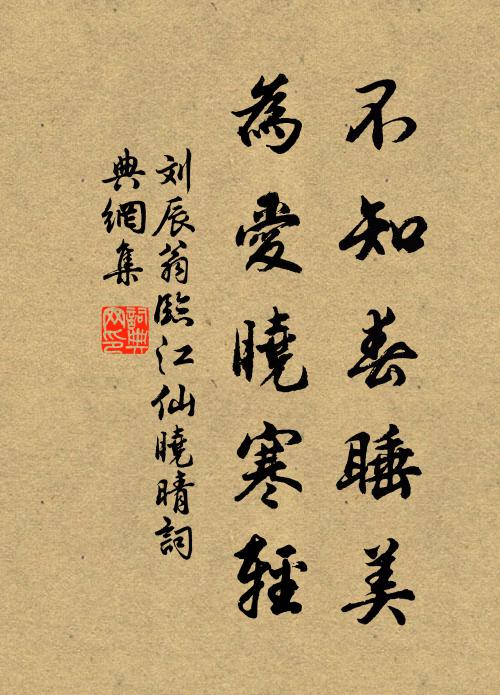 不知春睡美
為愛曉寒輕
刘辰翁臨江仙曉晴詞
典網集
詞典
网印